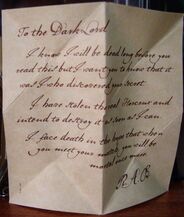 To the Dark Lord
I know I will be dead long before you
read this but I want you to know that it
was I who discovered your secret.
I have stolen the real Horcrux and
intend to destroy it as soon as I can.
I face death in the hope that when
you meet your match, you will be
mortal once more.
R.A.B